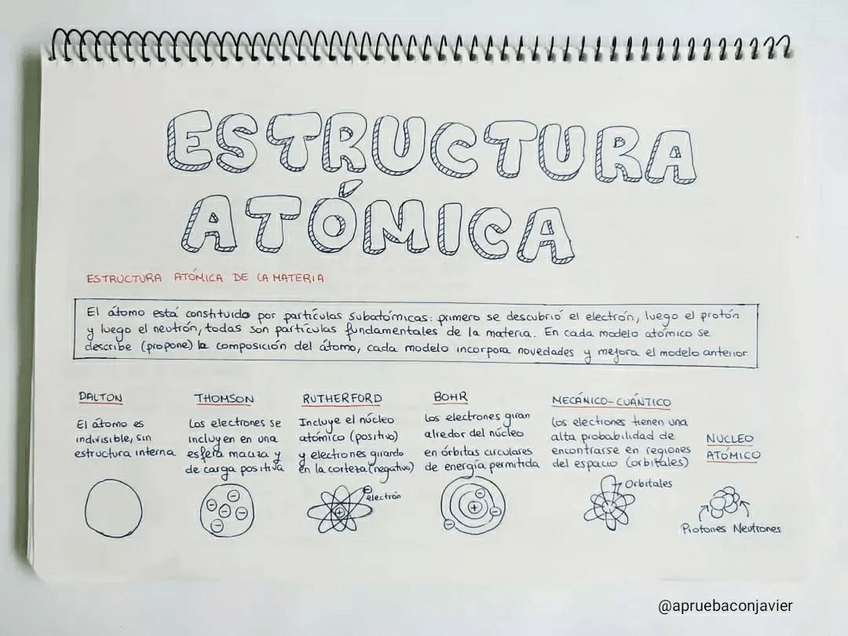 ESTRUCTURA
ATÓMICA
ESTRUCTURA ATÓMICA DE LA MATERIA
El átomo está constituido por partículas subatómicas: primero se descubrió el electrón, luego el protón
y luego el neutrón, todas son partículas fundamentales de la materia. En cada modelo atómico se
describe (propone) la composición del átomo, cada modelo incorpora novedades y mejora el modelo anterior
DALTON
El átomo es
indivisible, sin
estructura interna
THOMSON
Los electrones se
incluyen en una
esfera maciza y
de carga positiva
RUTHERFORD
Incluye el núcleo
atómico (positivo)
y electrones girando
en la corteza (negativo)
electrón
BOHR
Los electrones giran
alredor del núcleo
en órbitas circulares
de energía permitida
MECÁNICO-CUÁNTICO
Los electrones tienen una
alta probabilidad de
encontrarse en regiones
del espacio (orbitales)
Orbitales
NUCLEO
ATÓMICO
Protones Neutrones
@apruebaconjavier